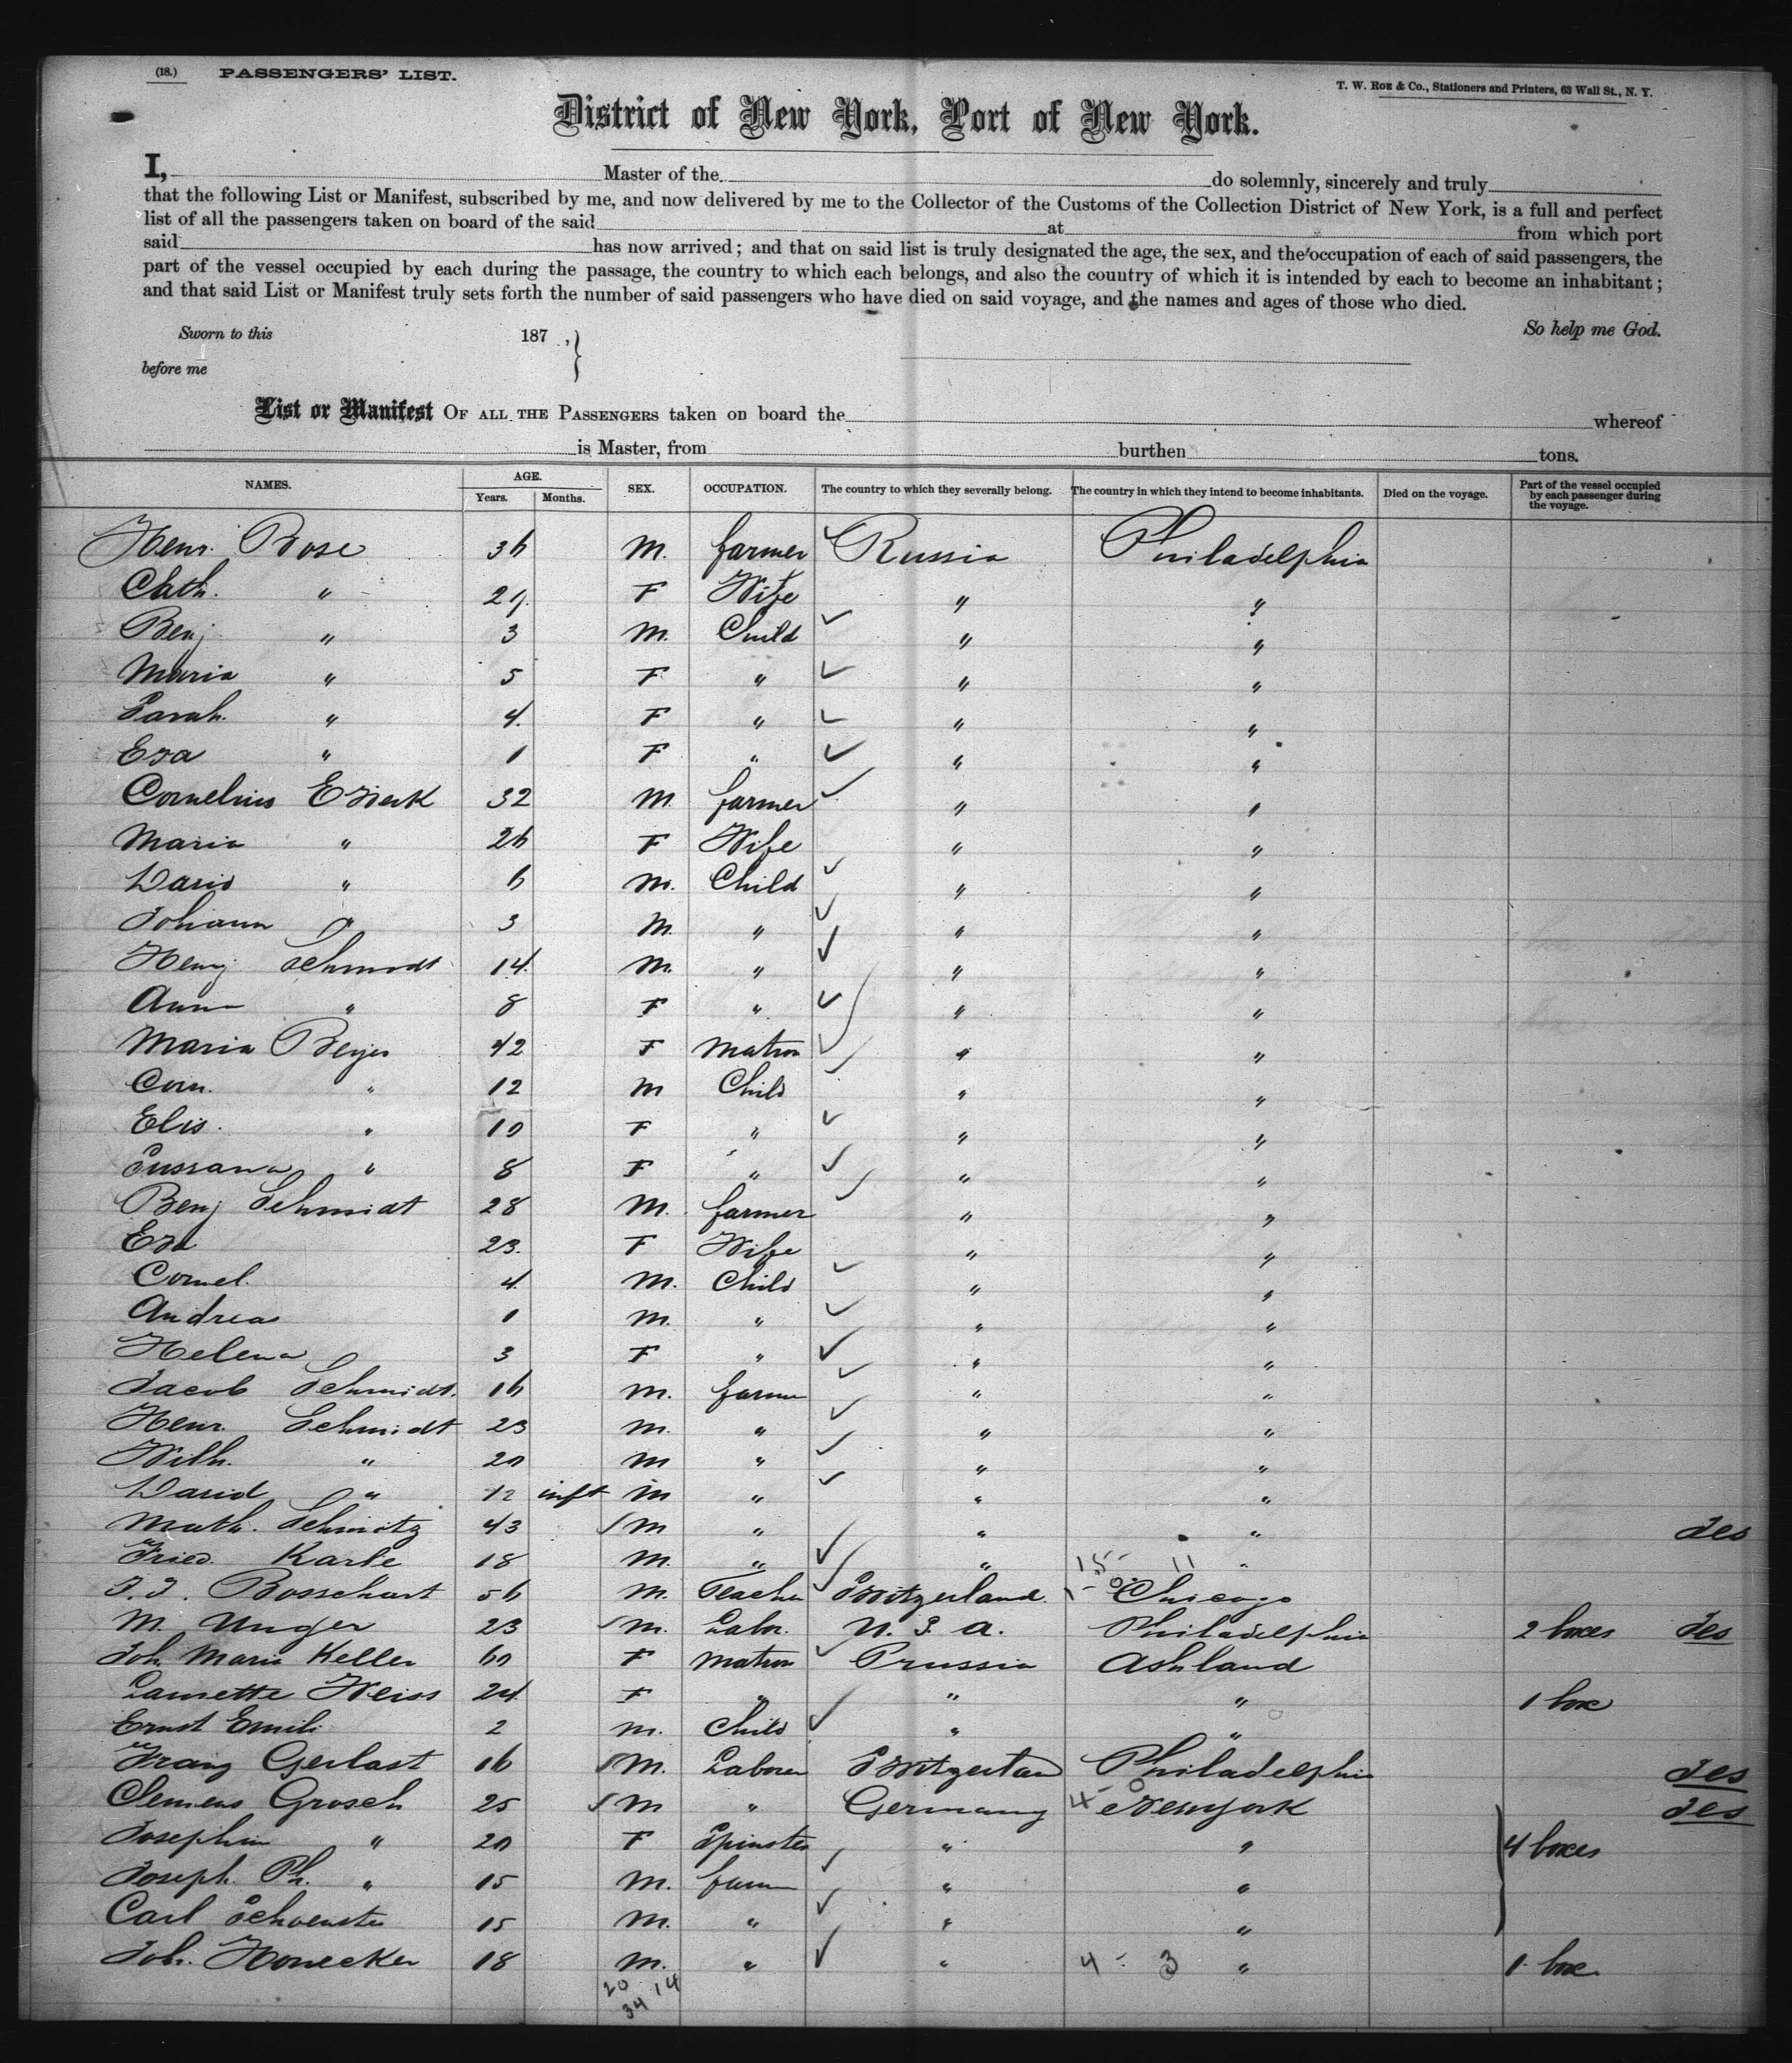 (18.) PASSENGERS' LIST.
T. W. ROE & Co., Stationers and Printers, 63 Wall St., N. Y.
District of New York, Port of New York.
I, Master of the do solemnly, sincerely and truly
that the following List or Manifest, subscribed by me, and now delivered by me to the Collector of the Customs of the Collection District of New York, is a full and perfect
list of all the passengers taken on board of the said at from which port
said has now arrived; and that on said list is truly designated the age, the sex, and the occupation of each of said passengers, the
part of the vessel occupied by each during the passage, the country to which each belongs, and also the country of which it is intended by each to become an inhabitant;
and that said List or Manifest truly sets forth the number of said passengers who have died on said voyage, and the names and ages of those who died.
Sworn to this 187 , } So help me God.
before me
List or Manifest OF ALL THE PASSENGERS taken on board the whereof
is Master, from burthen tons.
NAMES. AGE. Years. Months. SEX. OCCUPATION. The country to which they severally belong. The country in which they intend to become inhabitants. Died on the voyage. Part of the vessel occupied by each passenger during the voyage.
Henr. Bose 36 M. farmer Russia Philadelphia
Cath. " 29. F Wife " "
Benj " 3 M. Child " "
Maria " 5 F " " "
Sarah. " 4. F " " "
Eva " 1 F " " "
Cornelius 32 M. farmer " "
Maria " 26 F Wife " "
David " 6 M. Child " "
Johann " 3 M. " " "
Henry Schmidt 14. M. " " "
Anna " 8 F " " "
Maria 42 F Matron " "
Corn. " 12 M Child " "
Elis. " 10 F " " "
Sussana " 8 F " " "
Benj Schmidt 28 M. farmer " "
Eva 23. F Wife " "
Cornel. 4. M. Child " "
Andreas 1 M. " " "
Helena 3 F " " "
Jacob Schmidt. 16 M. farmer " "
Henr. Schmidt 23 M. " " "
Wilh. " 20 M " " "
David " 12 inft M " " "
Math. Schmitz 43 M " " " Jes
Fried. Karle 18 M. " " "
15- 11
J. J. Bosschart 56 M. Teacher Switzerland. Chicago
M. Unger 23 M. Labor. U. S. A. Philadelphia 2 boxes Jes
Joh. Maria Keller 60 F Matron Prussia Ashland
Laurette Weiss 24. F " " " 1 box
Ernst Emil 2 M. Child " "
Franz Gerlast 16 M. Laborer Switzerland Philadelphia Jes
Clemens Grosch 25 M " Germany 4-0 Newyork Jes
Josephin " 20 F Spinster " " 4 boxes
Joseph. Ph. " 15 M. farmer " "
Carl 15 M. " " "
Joh. Honecker 18 M. " " 4 - 3 " 1 box
20 14
34